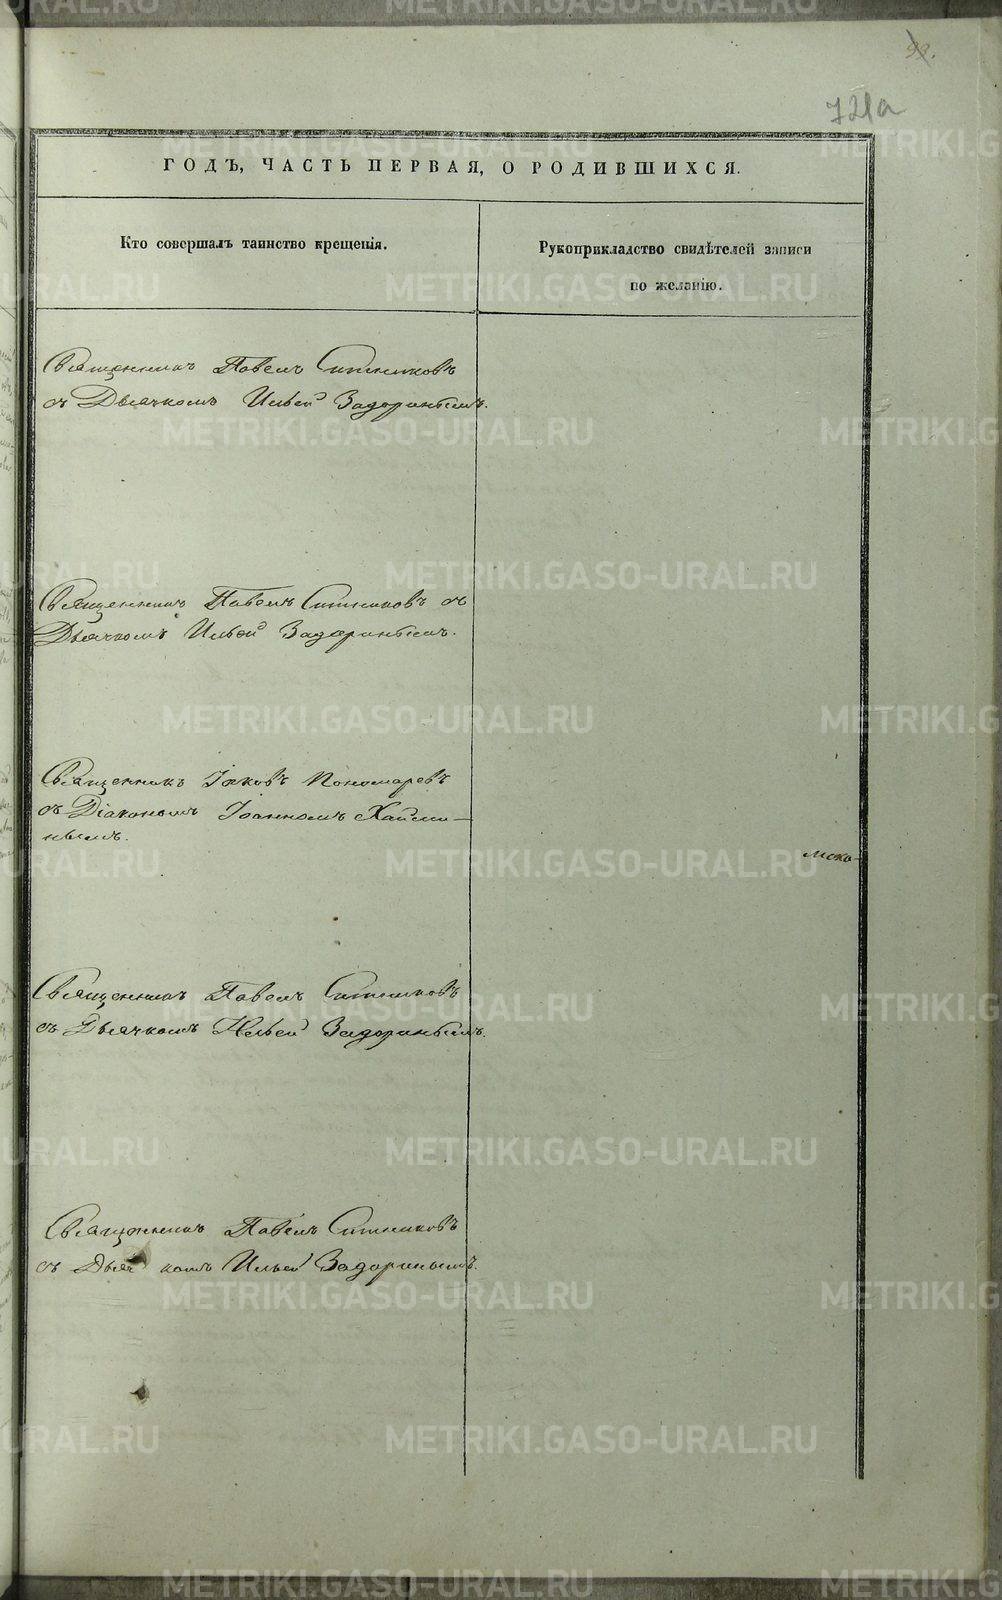 99.
721а
ГОДЪ, ЧАСТЬ ПЕРВАЯ, О РОДИВШИХСЯ.
Кто совершалъ таинство крещенія.
Рукоприкладство свидѣтелей записи
по желанію.
Священникъ Павелъ Ситниковъ
съ Дьячкомъ Ильей Задоринымъ.
Священникъ Павелъ Ситниковъ съ
Дьячкомъ Ильей Задоринымъ.
Священникъ Іаковъ Пономаревъ
съ Діакономъ Іоанномъ Хайми-
нымъ.
Священникъ Павелъ Ситниковъ
съ Дьячкомъ Ильей Задоринымъ.
Священникъ Павелъ Ситниковъ
съ Дьячкомъ Ильей Задоринымъ.
METRIKI.GASO-URAL.RU